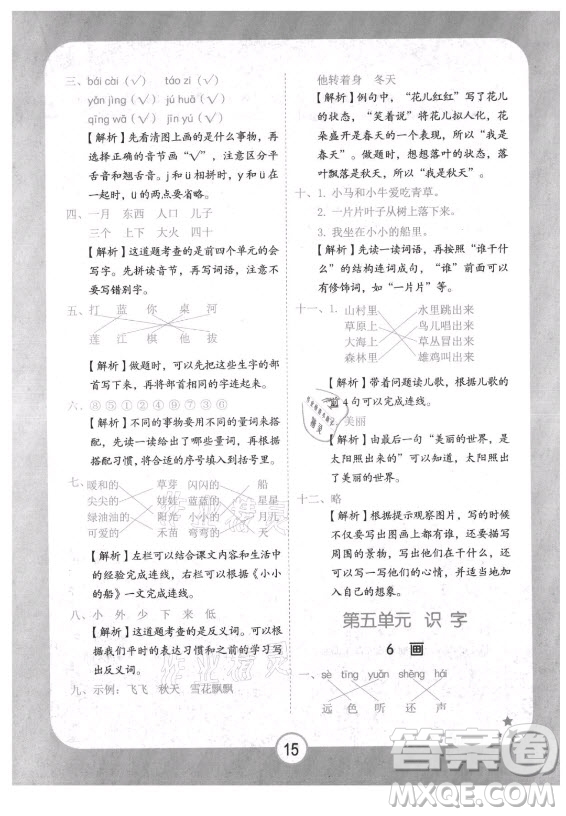 三、bái cài（√） táo zi（√）
yàn jìng（√） jú huā（√）
qīng wā（√） jīn yú（√）
【解析】先看清图上画的是什么事物，再
选择正确的音节画“√”，注意区分平
舌音、翘舌音。j 和 ü 相拼时，y 和 ü 在
一起时，ü 的两点要省略。
四、一月 东西 人口 儿子
三个 上下 大火 四十
【解析】这道题考查的是前四个单元的会
写字。先拼读音节，再写词语，注意不
要写错别字。
五、打 蓝 你 桌 河
莲 江 棋 他 拔
【解析】做题时，可以先找出这些生字的部
首，再将部首相同的字连起来。
六、⑧⑤①②⑦⑨③④⑥
【解析】不同的事物要用不同的量词来搭
配，先读一读给出了哪些量词，再根
据搭配习惯，将合适的序号填入括号。
七、暖和的 草芽 闪闪的 船
尖尖的 娃娃 蓝蓝的 星星
绿油油的 阳光 小小的 月儿
可爱的 禾苗 弯弯的 天
【解析】左栏可以结合课文内容和生活中
的经验完成连线。右栏可以根据《小小
的船》一文完成连线。
八、小 外 少 下 来 低
【解析】这道题考查的是反义词。我们可
以根据平时的表达习惯和之前的学习写
出反义词。
九、示例：飞飞 秋天 雪花飘飘
他转着身 冬天
【解析】例句中，“花儿红红”写了花儿
的状态，“笑着说”将花儿拟人化，花
朵盛开是春天的一个表现，所以“我是
春天”。做题时，想想落叶的状态，落
叶飘落是秋天，所以“我是秋天”。
十、1. 小马和小牛爱吃青草。
2. 一片片叶子从树上落下来。
3. 弟弟坐在小小的船里。
【解析】先读一读词语，再按照“谁干什
么”的结构连词成句，“谁”前面可以
有修饰词，如“一片片”等。
十一、1. 山村里 水里跳出来
草原上 鸟儿唱出来
大海上 草丛冒出来
森林里 雄鸡叫出来
【解析】带着问题读儿歌，根据儿歌的
前4句可以完成连线。
2. 美丽
【解析】根据最后一句“美丽的世界，是
太阳照出来的”可以知道，太阳照出了
美丽的世界。
十二、略
【解析】根据提示观察图片，写话的时
候不仅要写出干什么，还要试着描写
周围的景物，说出他们说了什么，也可
以写一写他们的心情，并进行大胆
想象。
第五单元 识 字
6 画
一、sè tīng yuǎn shēng hái
远 色 听 还 声
15
答案卷
MXQE.COM